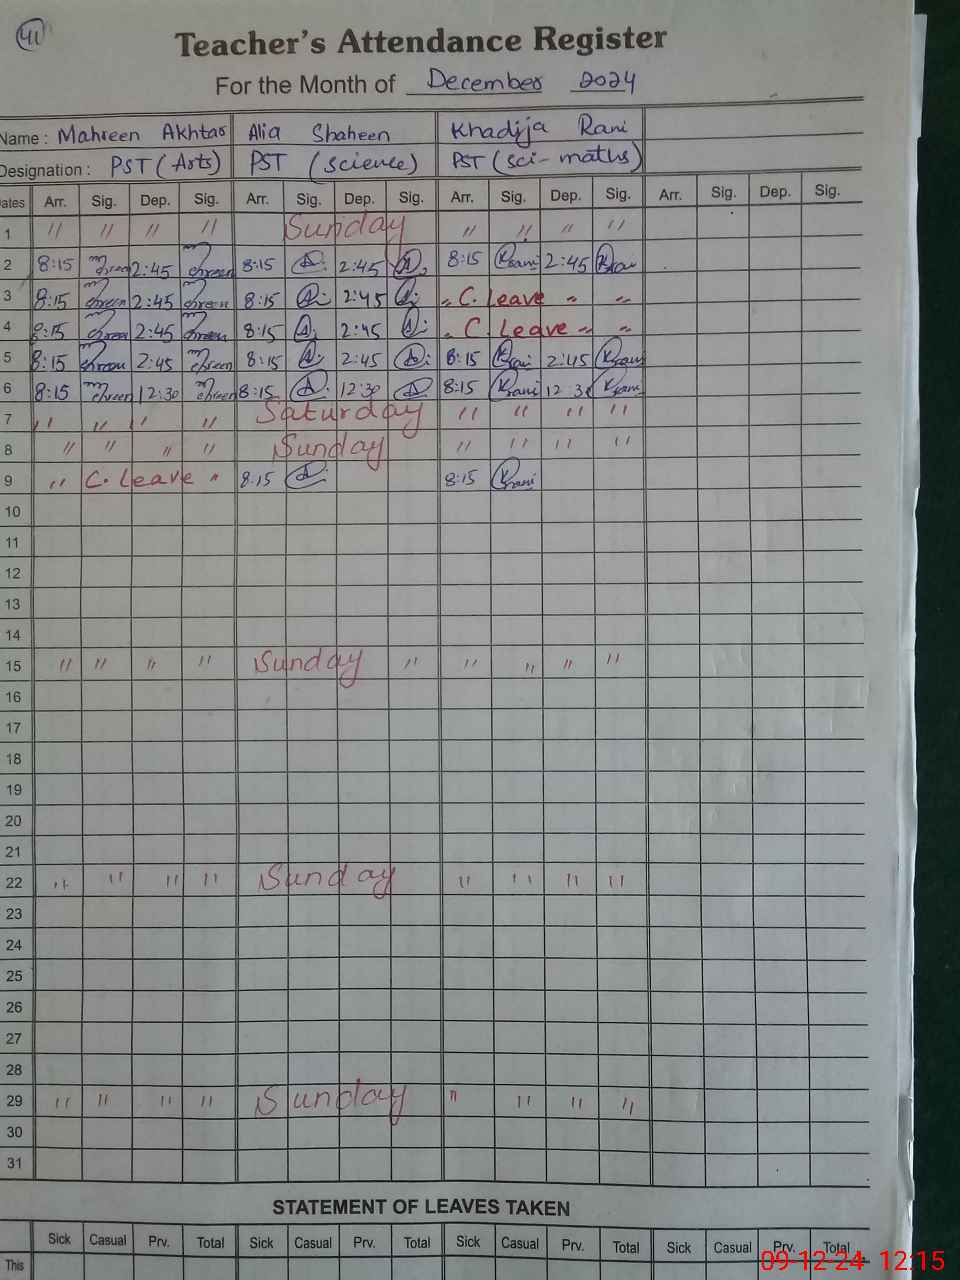 41
Teacher's Attendance Register
For the Month of December 2024
Name : Mahreen Akhtar Alia Shaheen Khadija Rani
Designation : PST (Arts) PST (science) PST (sci-maths)
Dates Arr. Sig. Dep. Sig. Arr. Sig. Dep. Sig. Arr. Sig. Dep. Sig. Arr. Sig. Dep. Sig.
1 " " " " Sunday " " " "
2 8:15 2:45 8:15 2:45 8:15 Krani 2:45 Krani
3 8:15 2:45 8:15 2:45 " C. Leave " "
4 8:15 2:45 8:15 2:45 " C. Leave " "
5 8:15 2:45 8:15 2:45 8:15 Krani 2:45 Krani
6 8:15 12:30 8:15 12:30 8:15 Krani 12:30 Krani
7 " " " " Saturday " " " "
8 " " " " Sunday " " " "
9 " C. Leave " 8:15 8:15 Krani
10
11
12
13
14
15 " " " " Sunday " " " " "
16
17
18
19
20
21
22 " " " " Sunday " " " "
23
24
25
26
27
28
29 " " " " Sunday " " " "
30
31
STATEMENT OF LEAVES TAKEN
Sick Casual Prv. Total Sick Casual Prv. Total Sick Casual Prv. Total Sick Casual Prv. Total
This
09-12-24 12:15